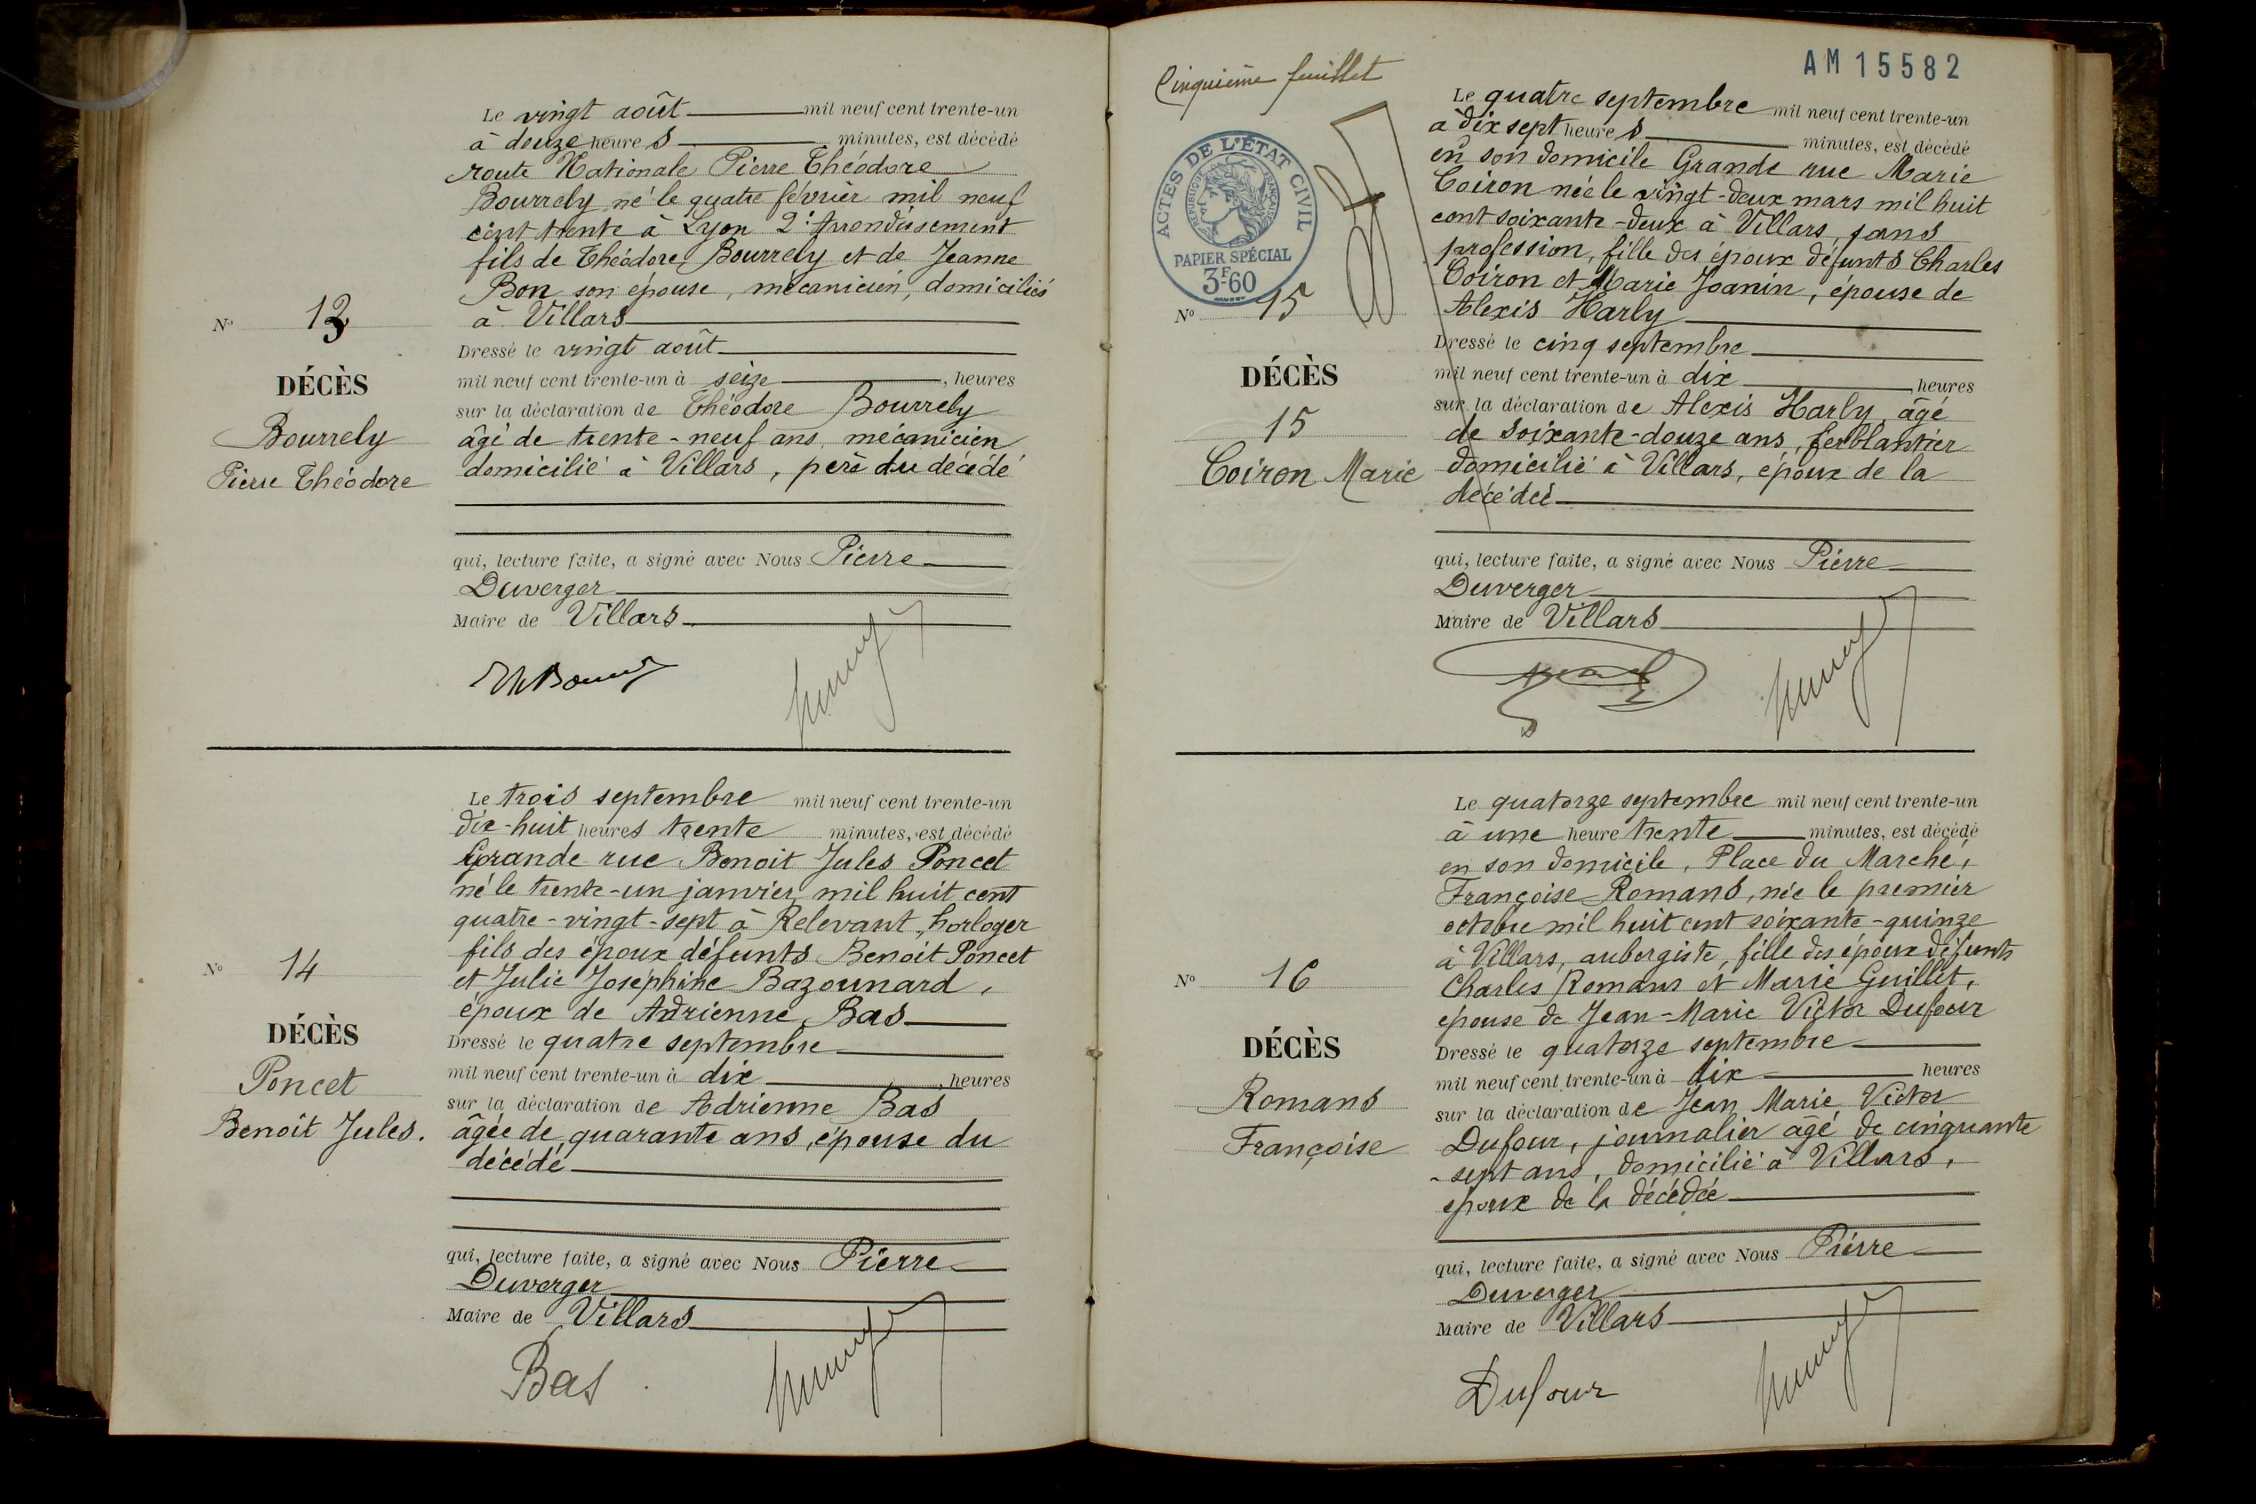 Le vingt août mil neuf cent trente-un
à douze heures minutes, est décédé
route Nationale Pierre Théodore
Bourrely né le quatre février mil neuf
cent trente à Lyon 2e Arrondissement
fils de Théodore Bourrely et de Jeanne
Bon son épouse, mécanicien, domiciliés
à Villars
N° 13
Dressé le vingt août
mil neuf cent trente-un à seize, heures
DÉCÈS
sur la déclaration de Théodore Bourrely
Bourrely
âgé de trente-neuf ans, mécanicien
Pierre Théodore
domicilié à Villars, père du décédé
qui, lecture faite, a signé avec Nous Pierre
Duverger
Maire de Villars
Le trois septembre mil neuf cent trente-un
dix-huit heures trente minutes, est décédé
Grande rue Benoit Jules Poncet
né le trente-un janvier mil huit cent
quatre-vingt-sept à Relevant, horloger
fils des époux défunts Benoit Poncet
N° 14
et Julie Joséphine Bazounard,
époux de Adrienne Bas
DÉCÈS
Dressé le quatre septembre
Poncet
mil neuf cent trente-un à dix, heures
Benoît Jules.
sur la déclaration de Adrienne Bas
âgée de quarante ans, épouse du
décédé
qui, lecture faite, a signé avec Nous Pierre
Duverger
Maire de Villars
Bas
Cinquième feuillet
AM 15582
ACTES DE L'ÉTAT CIVIL
RÉPUBLIQUE FRANÇAISE
PAPIER SPÉCIAL
3F60
Le quatre septembre mil neuf cent trente-un
à dix sept heures minutes, est décédé
en son domicile Grande rue Marie
Coiron née le vingt-deux mars mil huit
cent soixante-deux à Villars, sans
profession, fille des époux défunts Charles
Coiron et Marie Joanin, épouse de
Alexis Harly
N° 15
Dressé le cinq septembre
mil neuf cent trente-un à dix heures
DÉCÈS
sur la déclaration de Alexis Harly, âgé
15
de soixante-douze ans, ferblantier
Coiron Marie
domicilié à Villars, époux de la
décédée
qui, lecture faite, a signé avec Nous Pierre
Duverger
Maire de Villars
Le quatorze septembre mil neuf cent trente-un
à une heure trente minutes, est décédé
en son domicile, Place du Marché,
Françoise Romans, née le premier
octobre mil huit cent soixante-quinze
à Villars, aubergiste, fille des époux défunts
N° 16
Charles Romans et Marie Guillet,
épouse de Jean-Marie Victor Dufour
DÉCÈS
Dressé le quatorze septembre
mil neuf cent trente-un à dix heures
Romans
sur la déclaration de Jean Marie Victor
Françoise
Dufour, journalier âgé de cinquante
-sept ans, domicilié à Villars,
époux de la décédée
qui, lecture faite, a signé avec Nous Pierre
Duverger
Maire de Villars
Dufour